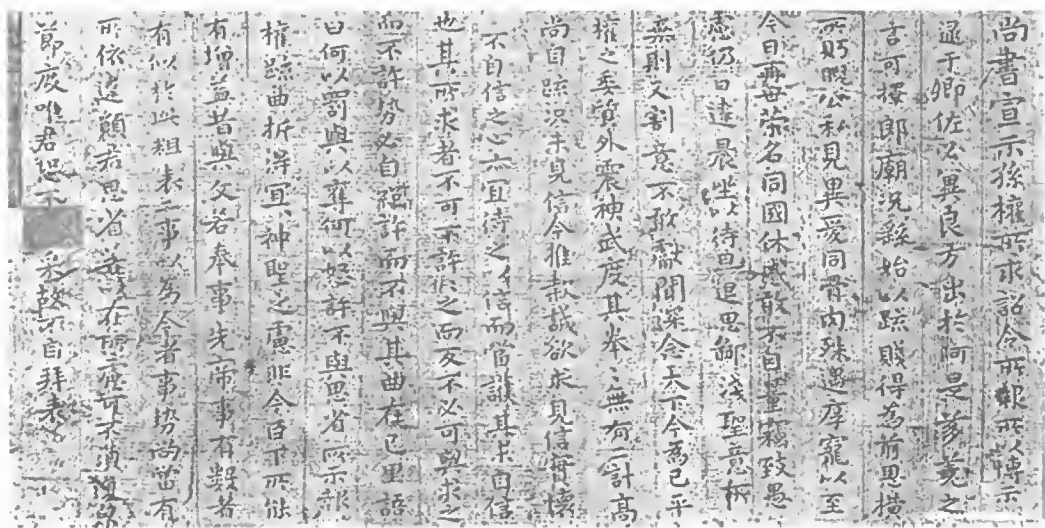 尚書宣示孫權所求詔令所報所以博示
逮于卿佐必冀良方出於阿是芻蕘之
言可擇郎廟況繇始以疏賤得為前恩橫
所眄睨公私見異愛同骨肉殊遇厚寵以至
今日再世榮名同國休慼敢不自量竊致愚
慮仍日達晨坐以待旦退思鄙淺聖意所
棄則又割意不敢獻聞深念天下今為已平
權之委質外震神武度其拳〻無有二計高
尚自疏況未見信今推款誠欲求見信實懷
不自信之心亦宜待之以信而當護其未自信
也其所求者不可不許許之而反不必可與求之
而不許勢必自絕許而不與其曲在己里語
曰何以罰與以奪何以怒許不與思省所示報
權疏曲折得宜宜神聖之慮非今臣下所能
有增益昔與文若奉事先帝事有數者
有似於此粗表二事以為今者事勢尚當有
所依違願君思省若以在所慮可不須復貌
節度唯君恐不采故不自拜表